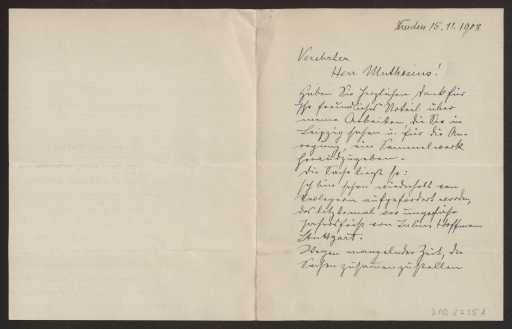 Dresden 15.11.1908
Verehrter
Herr Muthesius!
Haben Sie herzlichen Dank für
Ihr freundliches Urteil über
meine Arbeiten, die Sie in
Leipzig sahen u. für die An-
regung, ein Sammelwerk
herauszugeben.
Die Sache liegt so:
Ich bin schon wiederholt von
Verlegern aufgefordert worden,
das letztemal vor ungefähr
von Julius Hoffmann
Stuttgart.
Wegen mangelnder Zeit, die
Sachen zusammenzustellen